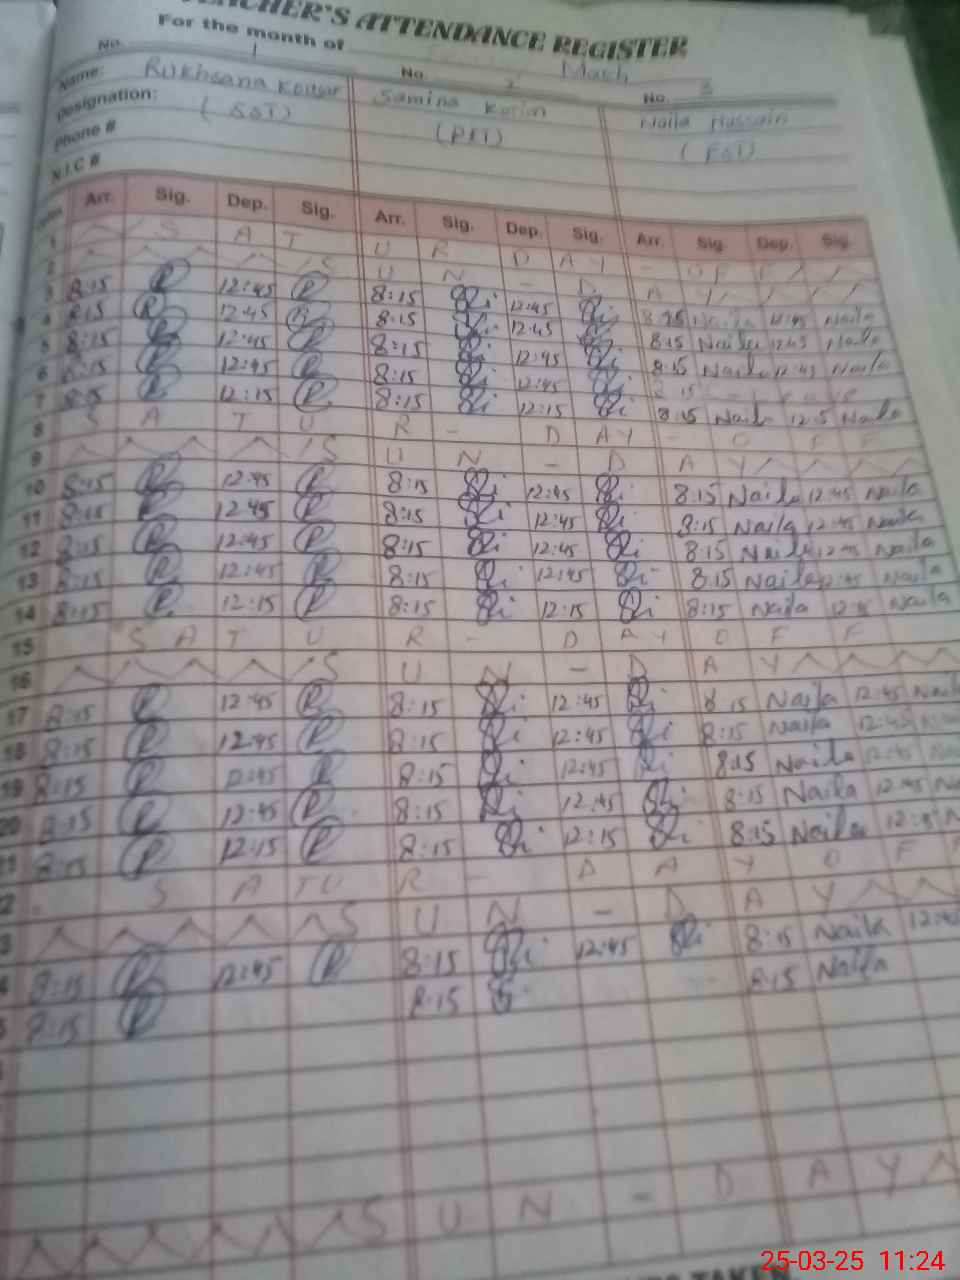 TEACHER'S ATTENDANCE REGISTER
For the month of March
No. 1 No. 2 No. 3
Name: Rukhsana Kousar Samina Karim Naila Hussain
Designation: (SST) (PET) (EST)
Phone #
N.I.C #
Arr. Sig. Dep. Sig. Arr. Sig. Dep. Sig. Arr. Sig. Dep. Sig.
1 S A T U R D A Y - O F F
2 S U N - D A Y
3 8:15 12:45 8:15 12:45 8:15 Naila 12:45 Naila
4 8:15 12:45 8:15 12:45 8:15 Naila 12:45 Naila
5 8:15 12:45 8:15 12:45 8:15 Naila 12:45 Naila
6 8:15 12:45 8:15 12:45
7 8:15 12:15 8:15 12:15 8:15 Naila Naila
8 S A T U R - D A Y - O F F
9 S U N - D A Y
10 8:15 12:45 8:15 12:45 8:15 Naila 12:45 Naila
11 8:15 12:45 8:15 12:45 8:15 Naila 12:45 Naila
12 8:15 12:45 8:15 12:45 8:15 Naila 12:45 Naila
13 8:15 12:45 8:15 12:45 8:15 Naila 12:45 Naila
14 8:15 12:15 8:15 12:15 8:15 Naila Naila
15 S A T U R - D A Y O F F
16 S U N - D A Y
17 8:15 12:45 8:15 12:45 8:15 Naila 12:45 Naila
18 8:15 12:45 8:15 12:45 8:15 Naila 12:45
19 8:15 12:45 8:15 12:45 8:15 Naila 12:45
20 8:15 12:45 8:15 12:45 8:15 Naila 12:45
21 8:15 12:15 8:15 12:15 8:15 Naila
S A T U R - D A Y O F F
S U N - D A Y
8:15 12:45 8:15 12:45 8:15 Naila 12:45
8:15 8:15 8:15 Naila
S U N - D A Y
TAKEN
25-03-25 11:24